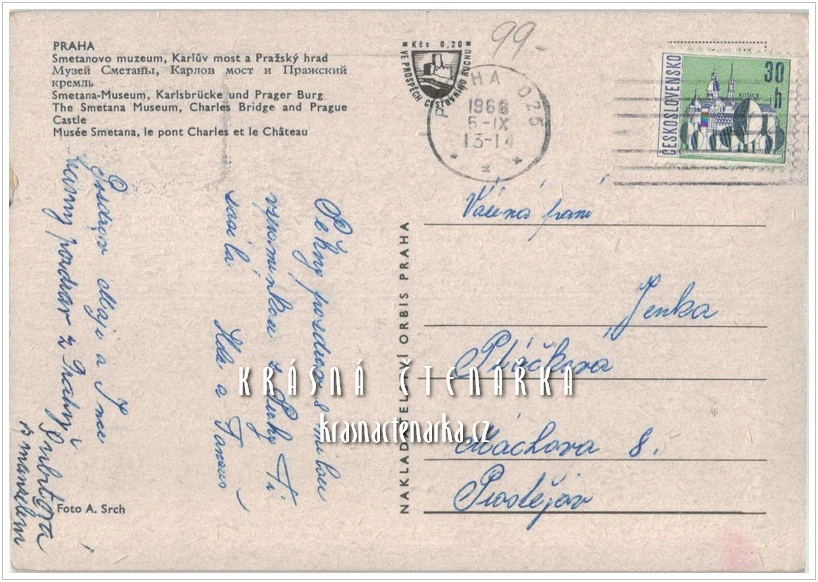 PRAHA
Smetanovo muzeum, Karlův most a Pražský hrad
Музей Сметаны, Карлов мост и Пражский
кремль
Smetana-Museum, Karlsbrücke und Prager Burg
The Smetana Museum, Charles Bridge and Prague
Castle
Musée Smetana, le pont Charles et le Château
Kčs 0,20
VE PROSPĚCH CESTOVNÍHO RUCHU
99-
PRAHA 025
1968
5-IX
13-14
ČESKOSLOVENSKO
30 h
Vážená paní
Jenka
Ptáčková
Máchova 8.
Prostějov
Pěkný pozdrav s milou
vzpomínkou z Prahy Ti
zasílá
a
Pozdrav
a
pozdrav z Prahy
s manželem
Foto A. Srch
NAKLADATELSTVÍ ORBIS PRAHA
KRÁSNÁ ČTENÁRKA
krasnactenarka.cz